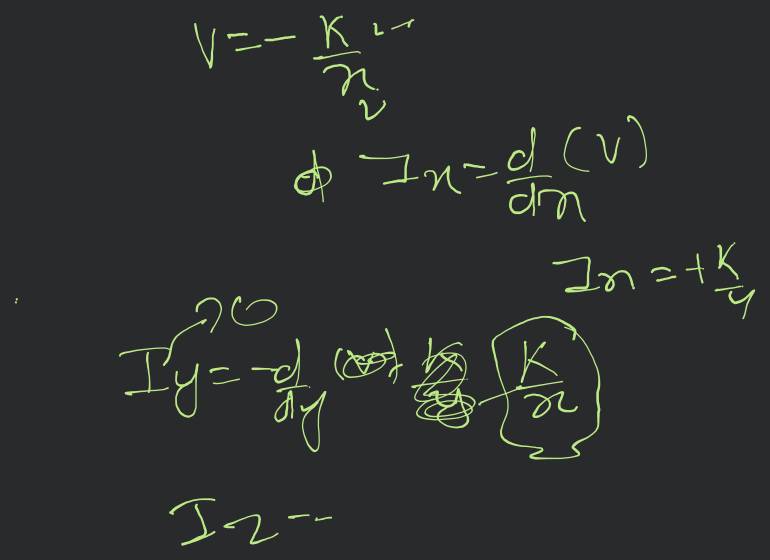 V = - K/x
Ix = d/dx (V)
Ix = + K/y
Iy = - d/dy K/x
Iz --